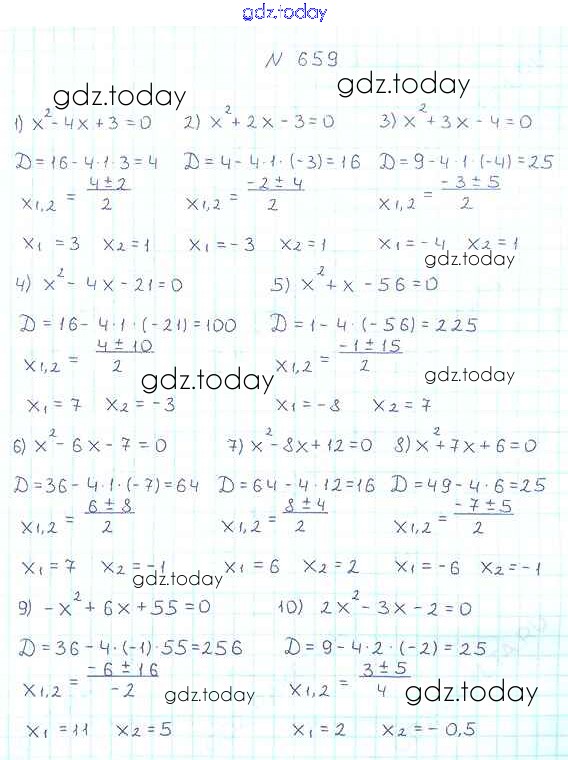 gdz.today
N 659
gdz.today gdz.today
1) x² - 4x + 3 = 0 2) x² + 2x - 3 = 0 3) x² + 3x - 4 = 0
D = 16 - 4·1·3 = 4 D = 4 - 4·1·(-3) = 16 D = 9 - 4·1·(-4) = 25
x1,2 = (4 ± 2)/2 x1,2 = (-2 ± 4)/2 x1,2 = (-3 ± 5)/2
x1 = 3 x2 = 1 x1 = -3 x2 = 1 x1 = -4 x2 = 1
gdz.today
4) x² - 4x - 21 = 0 5) x² + x - 56 = 0
D = 16 - 4·1·(-21) = 100 D = 1 - 4·(-56) = 225
x1,2 = (4 ± 10)/2 x1,2 = (-1 ± 15)/2
gdz.today gdz.today
x1 = 7 x2 = -3 x1 = -8 x2 = 7
6) x² - 6x - 7 = 0 7) x² - 8x + 12 = 0 8) x² + 7x + 6 = 0
D = 36 - 4·1·(-7) = 64 D = 64 - 4·12 = 16 D = 49 - 4·6 = 25
x1,2 = (6 ± 8)/2 x1,2 = (8 ± 4)/2 x1,2 = (-7 ± 5)/2
x1 = 7 x2 = -1 x1 = 6 x2 = 2 x1 = -6 x2 = -1
gdz.today
9) -x² + 6x + 55 = 0 10) 2x² - 3x - 2 = 0
D = 36 - 4·(-1)·55 = 256 D = 9 - 4·2·(-2) = 25
x1,2 = (-6 ± 16)/-2 x1,2 = (3 ± 5)/4
gdz.today gdz.today
x1 = 11 x2 = 5 x1 = 2 x2 = -0,5